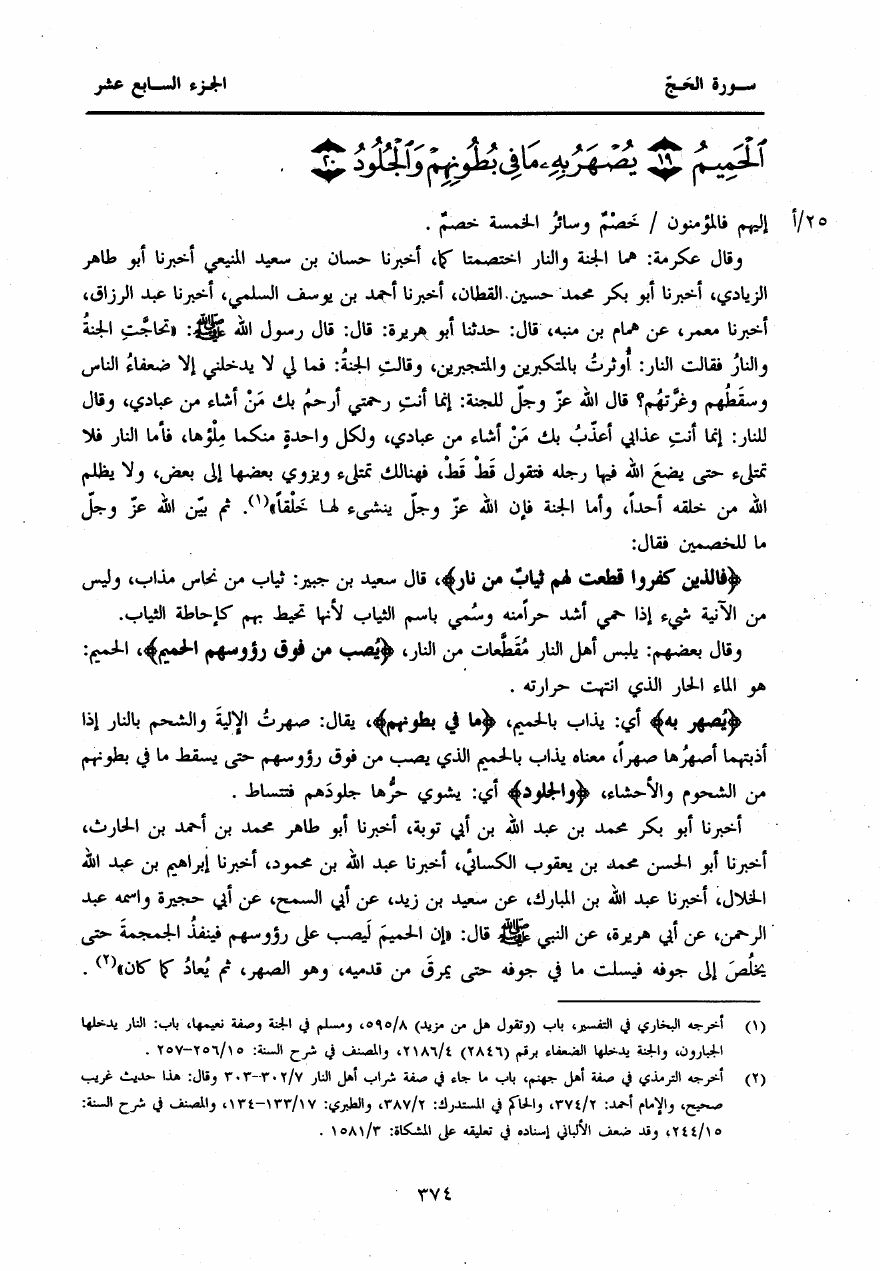 سـورة الحَـجّ
الجزء السـابع عشر
ٱلْحَمِيمُ ﴿١٩﴾ يُصْهَرُ بِهِۦ مَا فِى بُطُونِهِمْ وَٱلْجُلُودُ ﴿٢٠﴾
٢٥/أ
إليهم فالمؤمنون / خَصْمٌ وسائرُ الخمسة خصمٌ .
وقال عكرمة: هما الجنة والنار اختصمتا كما، أخبرنا حسان بن سعيد المنيعي أخبرنا أبو طاهر
الزيادي، أخبرنا أبو بكر محمد حسين القطان، أخبرنا أحمد بن يوسف السلمي، أخبرنا عبد الرزاق،
أخبرنا معمر، عن همام بن منبه، قال: حدثنا أبو هريرة: قال: قال رسول الله ﷺ: «تحاجَّتِ الجنةُ
والنارُ فقالت النار: أُوثرتُ بالمتكبرين والمتجبرين، وقالتِ الجنةُ: فما لي لا يدخلني إلا ضعفاءُ الناس
وسقَطُهم وغرَّتهُم؟ قال الله عزّ وجلّ للجنة: إنما أنتِ رحمتي أرحمُ بك مَنْ أشاء من عبادي، وقال
للنار: إنما أنتِ عذابي أعذّبُ بك مَنْ أشاء من عبادي، ولكل واحدةٍ منكما مِلْؤها، فأما النار فلا
تمتلىء حتى يضعَ الله فيها رجله فتقول قَطْ قَطْ، فهنالك تمتلىء ويزوي بعضها إلى بعض، ولا يظلم
الله من خلقه أحداً، وأما الجنة فإن الله عزّ وجلّ ينشىء لهـا خَلْقاً»(١). ثم بيّن الله عزّ وجلّ
ما للخصمين فقال:
﴿فالذين كفروا قطعت لهم ثيابٌ من نار﴾، قال سعيد بن جبير: ثياب من نحاس مذاب، وليس
من الآنية شيء إذا حمي أشد حراًمنه وسُمي باسم الثياب لأنها تحيط بهم كإحاطة الثياب.
وقال بعضهم: يلبس أهل النار مُقَطَّعات من النار، ﴿يُصب من فوق رؤوسهم الحميم﴾، الحميم:
هو الماء الحار الذي انتهت حرارته .
﴿يُصهر به﴾ أي: يذاب بالحميم، ﴿ما في بطونهم﴾، يقال: صهرتُ الإليةَ والشحم بالنار إذا
أذبتهما أصهرُها صهراً، معناه يذاب بالحميم الذي يصب من فوق رؤوسهم حتى يسقط ما في بطونهم
من الشحوم والأحشاء، ﴿والجلود﴾ أي: يشوي حرُّها جلودَهم فتتساط .
أخبرنا أبو بكر محمد بن عبد الله بن أبي توبة، أخبرنا أبو طاهر محمد بن أحمد بن الحارث،
أخبرنا أبو الحسن محمد بن يعقوب الكسائي، أخبرنا عبد الله بن محمود، أخبرنا إبراهيم بن عبد الله
الخلال، أخبرنا عبد الله بن المبارك، عن سعيد بن زيد، عن أبي السمح، عن أبي حجيرة واسمه عبد
الرحمن، عن أبي هريرة، عن النبي ﷺ قال: «إن الحميمَ لَيصب على رؤوسهم فينفذُ الجمجمةَ حتى
يخلُصَ إلى جوفه فيسلت ما في جوفه حتى يمرقَ من قدميه، وهو الصهر، ثم يُعادُ كما كان»(٢) .
(١) أخرجه البخاري في التفسير، باب (وتقول هل من مزيد) ٥٩٥/٨، ومسلم في الجنة وصفة نعيمها، باب: النار يدخلها
الجبارون، والجنة يدخلها الضعفاء برقم (٢٨٤٦) ٢١٨٦/٤، والمصنف في شرح السنة: ٢٥٦/١٥-٢٥٧ .
(٢) أخرجه الترمذي في صفة أهل جهنم، باب ما جاء في صفة شراب أهل النار ٣٠٢/٧-٣٠٣ وقال: هذا حديث غريب
صحيح، والإمام أحمد: ٣٧٤/٢، والحاكم في المستدرك: ٣٨٧/٢، والطبري: ١٣٣/١٧-١٣٤، والمصنف في شرح السنة:
٢٤٤/١٥، وقد ضعف الألباني إسناده في تعليقه على المشكاة: ١٥٨١/٣ .
٣٧٤